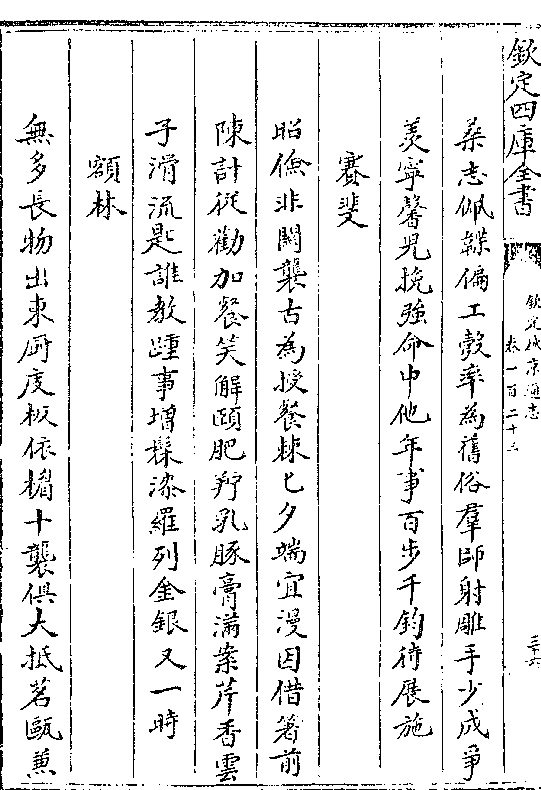 欽定四庫全書
欽定盛京通志
卷一百二十三
三十六
桑志佩韘偏工彀率為舊俗羣師射雕手少成爭
羨寧馨兒挽強命中他年事百步千鈞待展施
賽斐
昭儉非關襲古為授餐棘匕夕端宜漫因借箸前
陳計從勸加餐笑解頤肥羜乳豚膏滿案芹香雲
子滑流匙誰教踵事增髹漆羅列金銀又一時
額林
無多長物出東厨庋板依楣十襲俱大抵茗甌兼